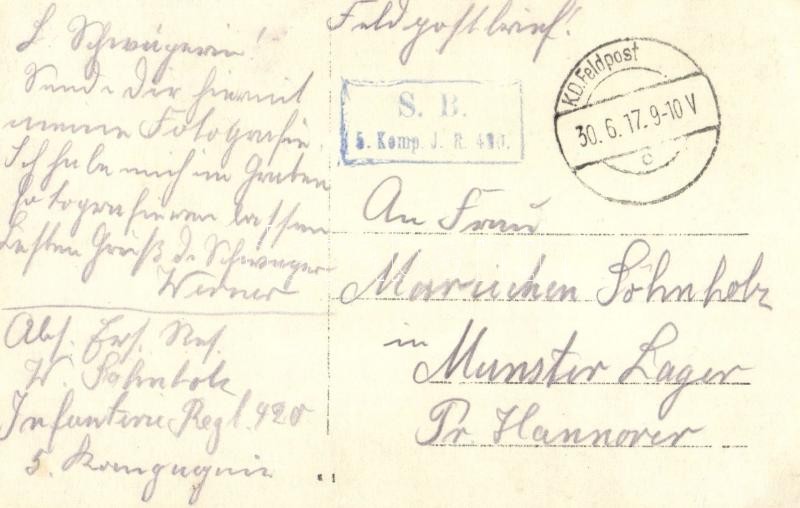 Feldpostbrief!
L. Schwägerin!
Sende Dir hiermit
meine Fotografie.
Ich habe mich im Graben
fotografieren lassen
Besten Gruß d. Schwager
Werner
Abs. Ers. Res.
W. Söhnholz
Infanterie Regt. 420
5. Kompagnie
S. B.
5. Komp. J. R. 420.
KD. Feldpost
30. 6. 17. 9-10 V
c
An Frau
Mariechen Söhnholz
in
Munster Lager
Pr. Hannover